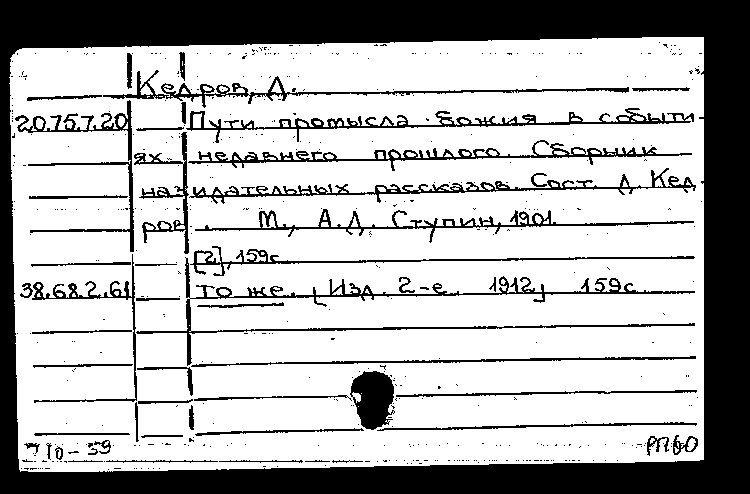 Кедров, Д.
20.75.7.20 Пути промысла Божия в событи-
ях недавнего прошлого. Сборник
назидательных рассказов. Сост. Д. Кед-
ров. М., А.Д. Ступин, 1901.
[2], 159с.
38.68.2.61 То же. [Изд. 2-е 1912] 159с.
710-59